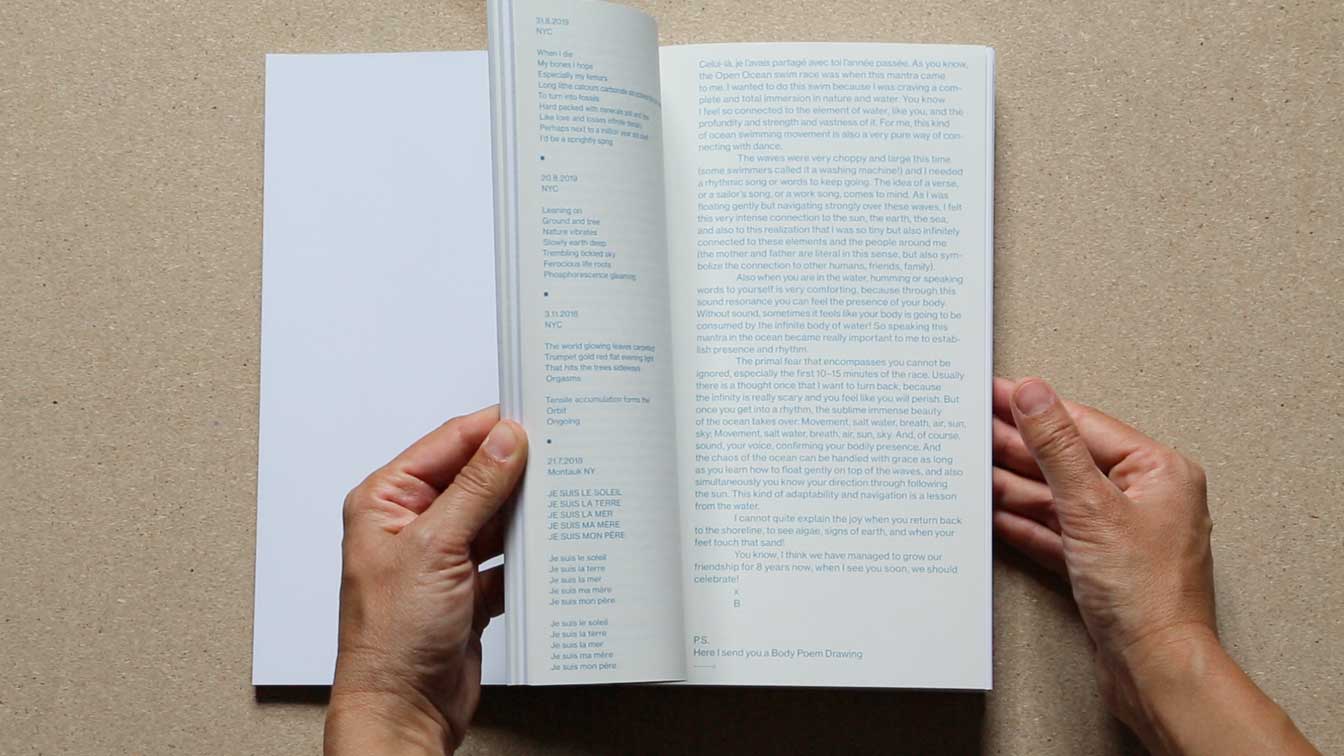 31.8.2019
NYC
When I die
My bones I hope
Especially my femurs
Long lithe calcium carbonate structures
To turn into fossils
Hard packed with minerals
Like love and losses infinite
Perhaps next to a million year old
I'd be a sprightly song
•
20.8.2019
NYC
Leaning on
Ground and tree
Nature vibrates
Slowly earth deep
Trembling tickled sky
Ferocious life roots
Phosphorescence gleaming
•
3.11.2018
NYC
The world glowing leaves carpeted
Trumpet gold red flat evening light
That hits the trees sideways
Orgasms
Tensile accumulation forms the
Orbit
Ongoing
•
21.7.2018
Montauk NY
JE SUIS LE SOLEIL
JE SUIS LA TERRE
JE SUIS LA MER
JE SUIS MA MÈRE
JE SUIS MON PÈRE
Je suis le soleil
Je suis la terre
Je suis la mer
Je suis ma mère
Je suis mon père
Je suis le soleil
Je suis la terre
Je suis la mer
Je suis ma mère
Je suis mon père
Celui-là, je l'avais partagé avec toi l'année passée. As you know,
the Open Ocean swim race was when this mantra came
to me. I wanted to do this swim because I was craving a com-
plete and total immersion in nature and water. You know
I feel so connected to the element of water, like you, and the
profundity and strength and vastness of it. For me, this kind
of ocean swimming movement is also a very pure way of con-
necting with dance.
The waves were very choppy and large this time
(some swimmers called it a washing machine!) and I needed
a rhythmic song or words to keep going. The idea of a verse,
or a sailor's song, or a work song, comes to mind. As I was
floating gently but navigating strongly over these waves, I felt
this very intense connection to the sun, the earth, the sea,
and also to this realization that I was so tiny but also infinitely
connected to these elements and the people around me
(the mother and father are literal in this sense, but also sym-
bolize the connection to other humans, friends, family).
Also when you are in the water, humming or speaking
words to yourself is very comforting, because through this
sound resonance you can feel the presence of your body.
Without sound, sometimes it feels like your body is going to be
consumed by the infinite body of water! So speaking this
mantra in the ocean became really important to me to estab-
lish presence and rhythm.
The primal fear that encompasses you cannot be
ignored, especially the first 10–15 minutes of the race. Usually
there is a thought once that I want to turn back, because
the infinity is really scary and you feel like you will perish. But
once you get into a rhythm, the sublime immense beauty
of the ocean takes over: Movement, salt water, breath, air, sun,
sky. Movement, salt water, breath, air, sun, sky. And, of course,
sound, your voice, confirming your bodily presence. And
the chaos of the ocean can be handled with grace as long
as you learn how to float gently on top of the waves, and also
simultaneously you know your direction through following
the sun. This kind of adaptability and navigation is a lesson
from the water.
I cannot quite explain the joy when you return back
to the shoreline, to see algae, signs of earth, and when your
feet touch that sand!
You know, I think we have managed to grow our
friendship for 8 years now, when I see you soon, we should
celebrate!
x
B
P.S.
Here I send you a Body Poem Drawing